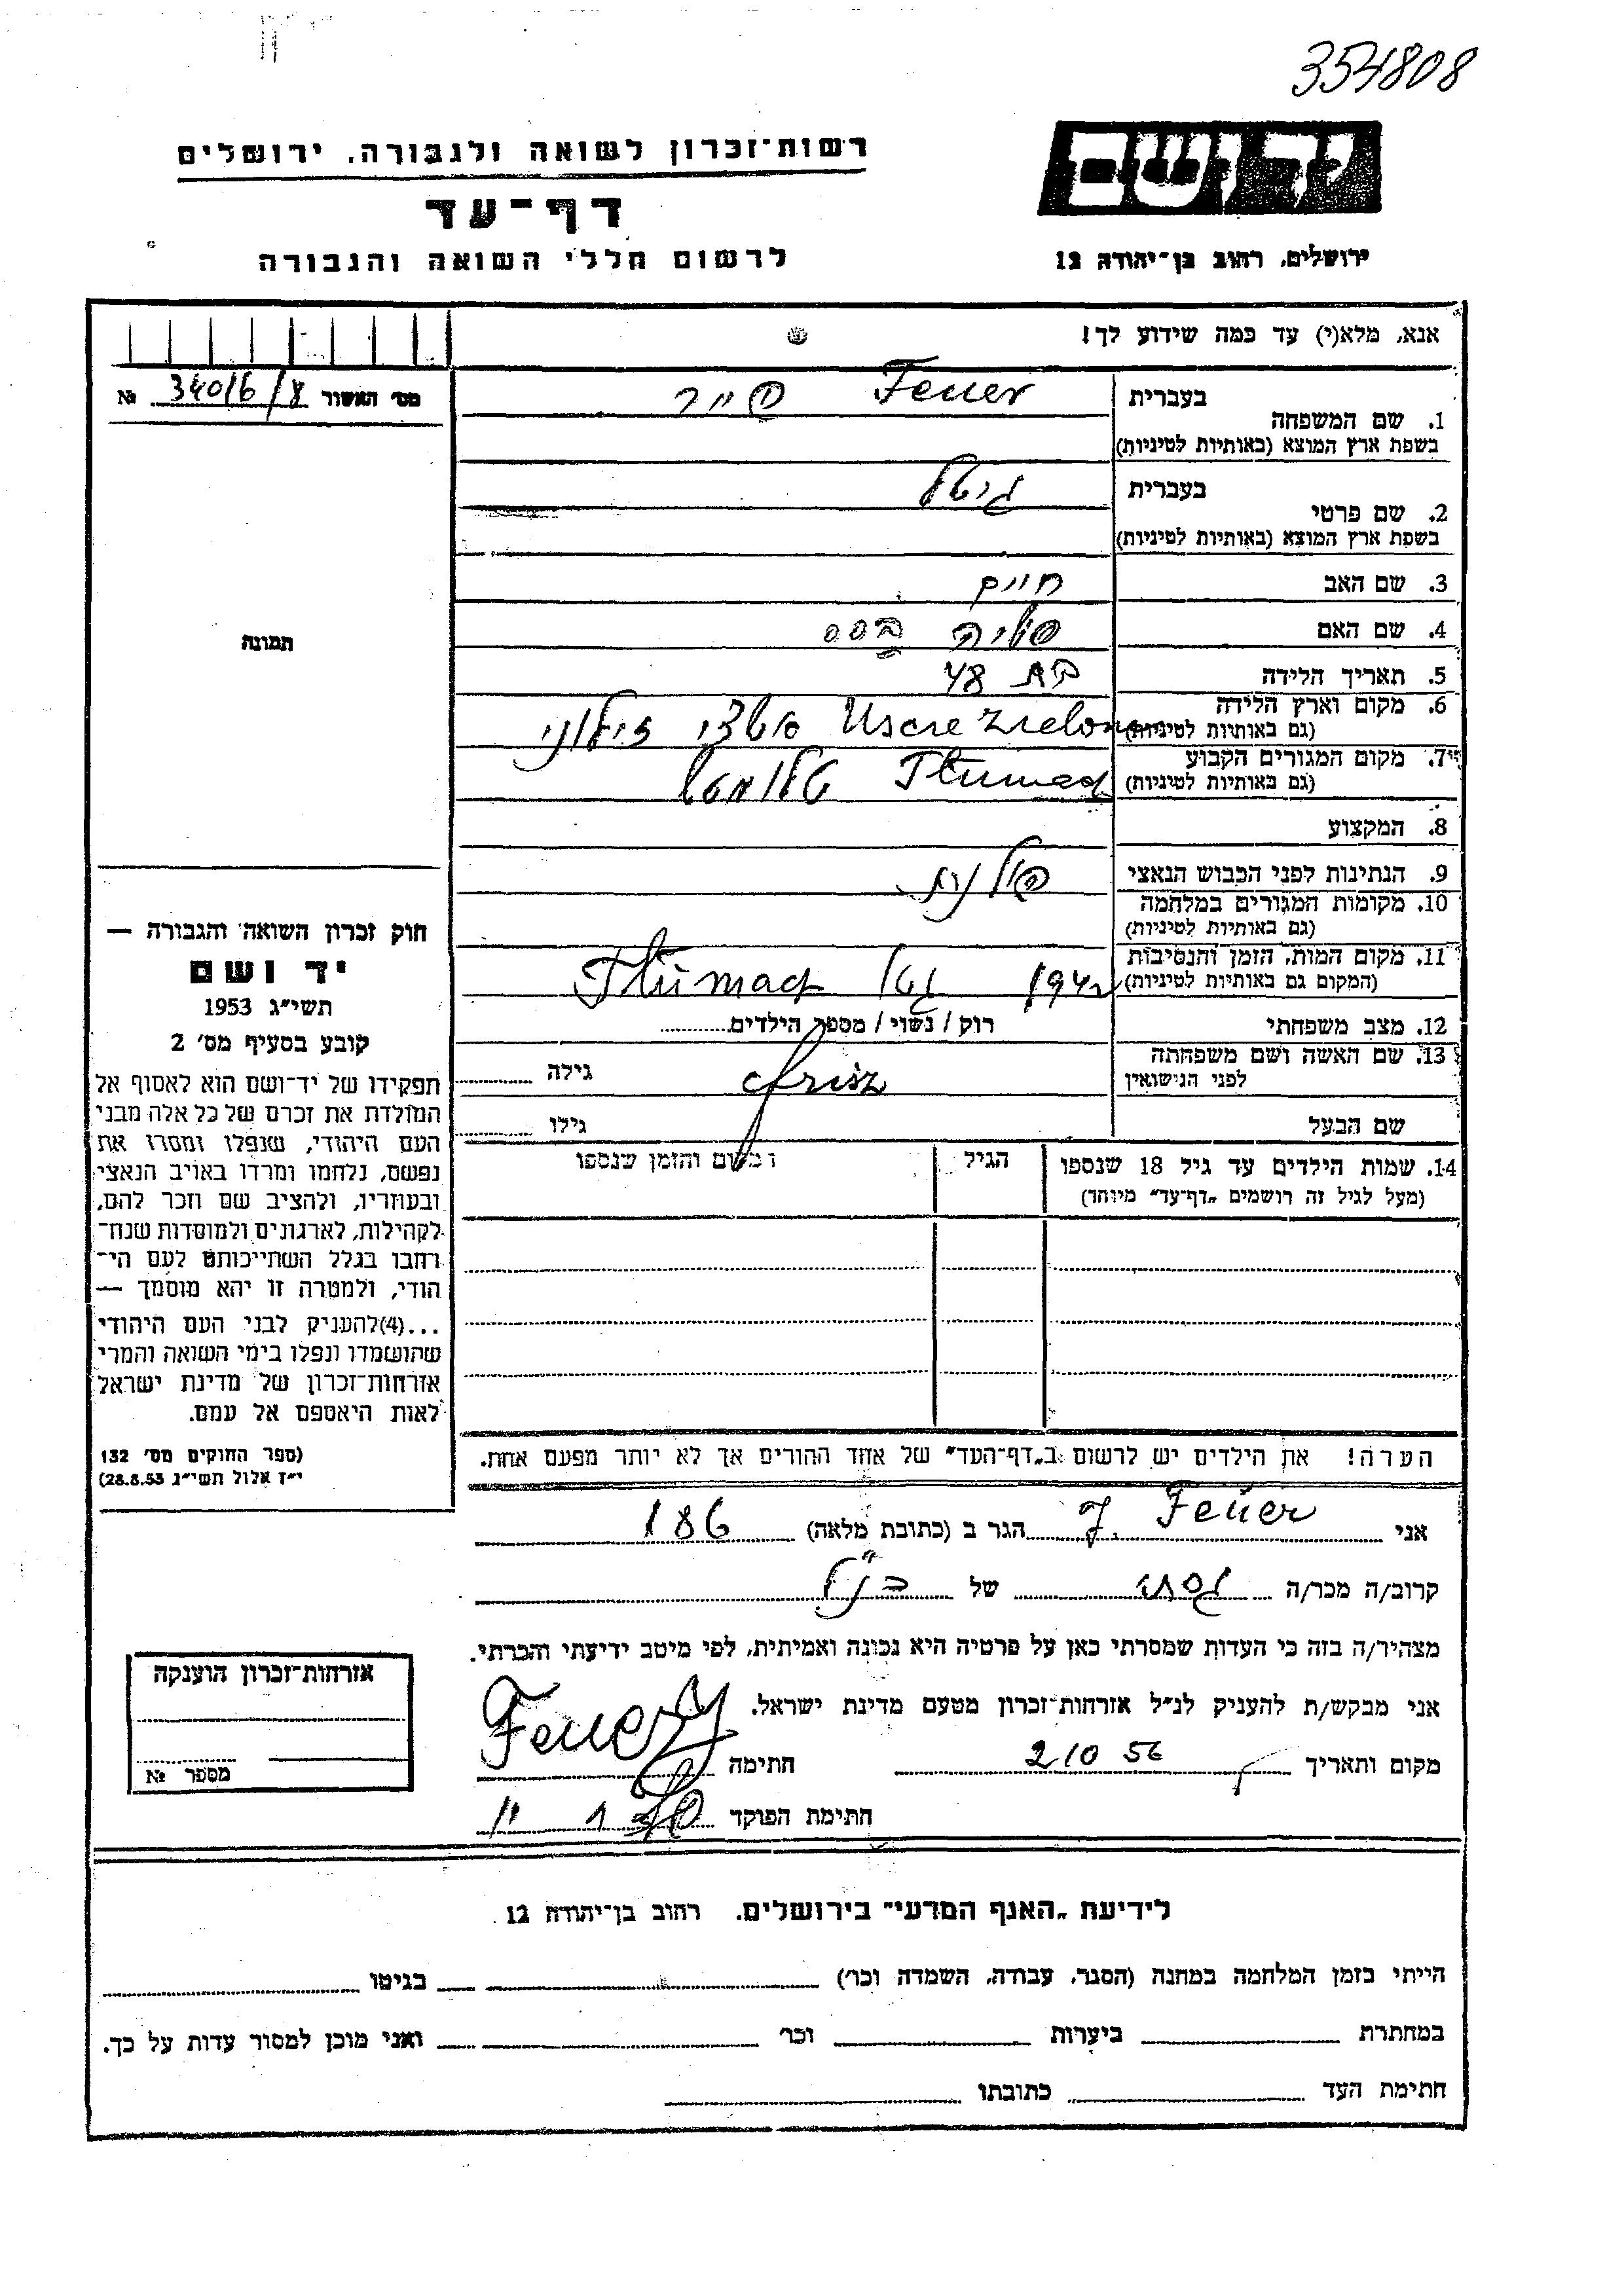 354808
יד ושם
רשות־זכרון לשואה ולגבורה, ירושלים
דף־עד
ירושלים, רחוב בן־יהודה 12
לרשום חללי השואה והגבורה
אנא, מלא(י) עד כמה שידוע לך!
מס׳ האשור 34016/8 №
בעברית Feuer פייר
1. שם המשפחה
בשפת ארץ המוצא (באותיות לטיניות)
בעברית גיטל
2. שם פרטי
בשפת ארץ המוצא (באותיות לטיניות)
3. שם האב חיים
4. שם האם
תמונה
5. תאריך הלידה בת 48
6. מקום וארץ הלידה
(גם באותיות לטיניות)
7. מקום המגורים הקבוע
(גם באותיות לטיניות)
8. המקצוע
9. הנתינות לפני הכבוש הנאצי
10. מקומות המגורים במלחמה
(גם באותיות לטיניות)
11. מקום המות, הזמן והנסיבות
(המקום גם באותיות לטיניות) 1942
12. מצב משפחתי רוק / נשוי / מספר הילדים
13. שם האשה ושם משפחתה גילה
לפני הנישואין
שם הבעל גילו
14. שמות הילדים עד גיל 18 שנספו הגיל ומקום והזמן שנספו
(מעל לגיל זה רושמים „דף־עד״ מיוחד)
חוק זכרון השואה והגבורה —
יד ושם
תשי״ג 1953
קובע בסעיף מס׳ 2
תפקידו של יד־ושם הוא לאסוף אל
המולדת את זכרם של כל אלה מבני
העם היהודי, שנפלו ומסרו את
נפשם, נלחמו ומרדו באויב הנאצי
ובעוזריו, ולהציב שם וזכר להם,
לקהילות, לארגונים ולמוסדות שנח־
רחבו בגלל השתייכותם לעם הי־
הודי, ולמטרה זו יהא מוסמך —
...(4)להעניק לבני העם היהודי
שהושמדו ונפלו בימי השואה והמרי
אזרחות־זכרון של מדינת ישראל
לאות היאספם אל עמם.
(ספר החוקים מס׳ 132
י״ז אלול תשי״ג 28.8.53)
הערה! את הילדים יש לרשום ב„דף־העד״ של אחד ההורים אך לא יותר מפעם אחת.
אני J. Feuer הגר ב (כתובת מלאה) 186
קרוב/ה מכר/ה של הנ״ל
מצהיר/ה בזה כי העדות שמסרתי כאן על פרטיה היא נכונה ואמיתית, לפי מיטב ידיעתי והכרתי.
אני מבקש/ת להעניק לנ״ל אזרחות־זכרון מטעם מדינת ישראל.
מקום ותאריך 2 10 56 חתימה Feuer
חתימת הפוקד
אזרחות־זכרון הוענקה
מספר №
לידיעת „האגף המדעי״ בירושלים. רחוב בן־יהודה 12
הייתי בזמן המלחמה במחנה (הסגר, עבודה, השמדה וכו׳) בגיטו
במחתרת ביערות וכו׳ ואני מוכן למסור עדות על כך.
חתימת העד כתובתו